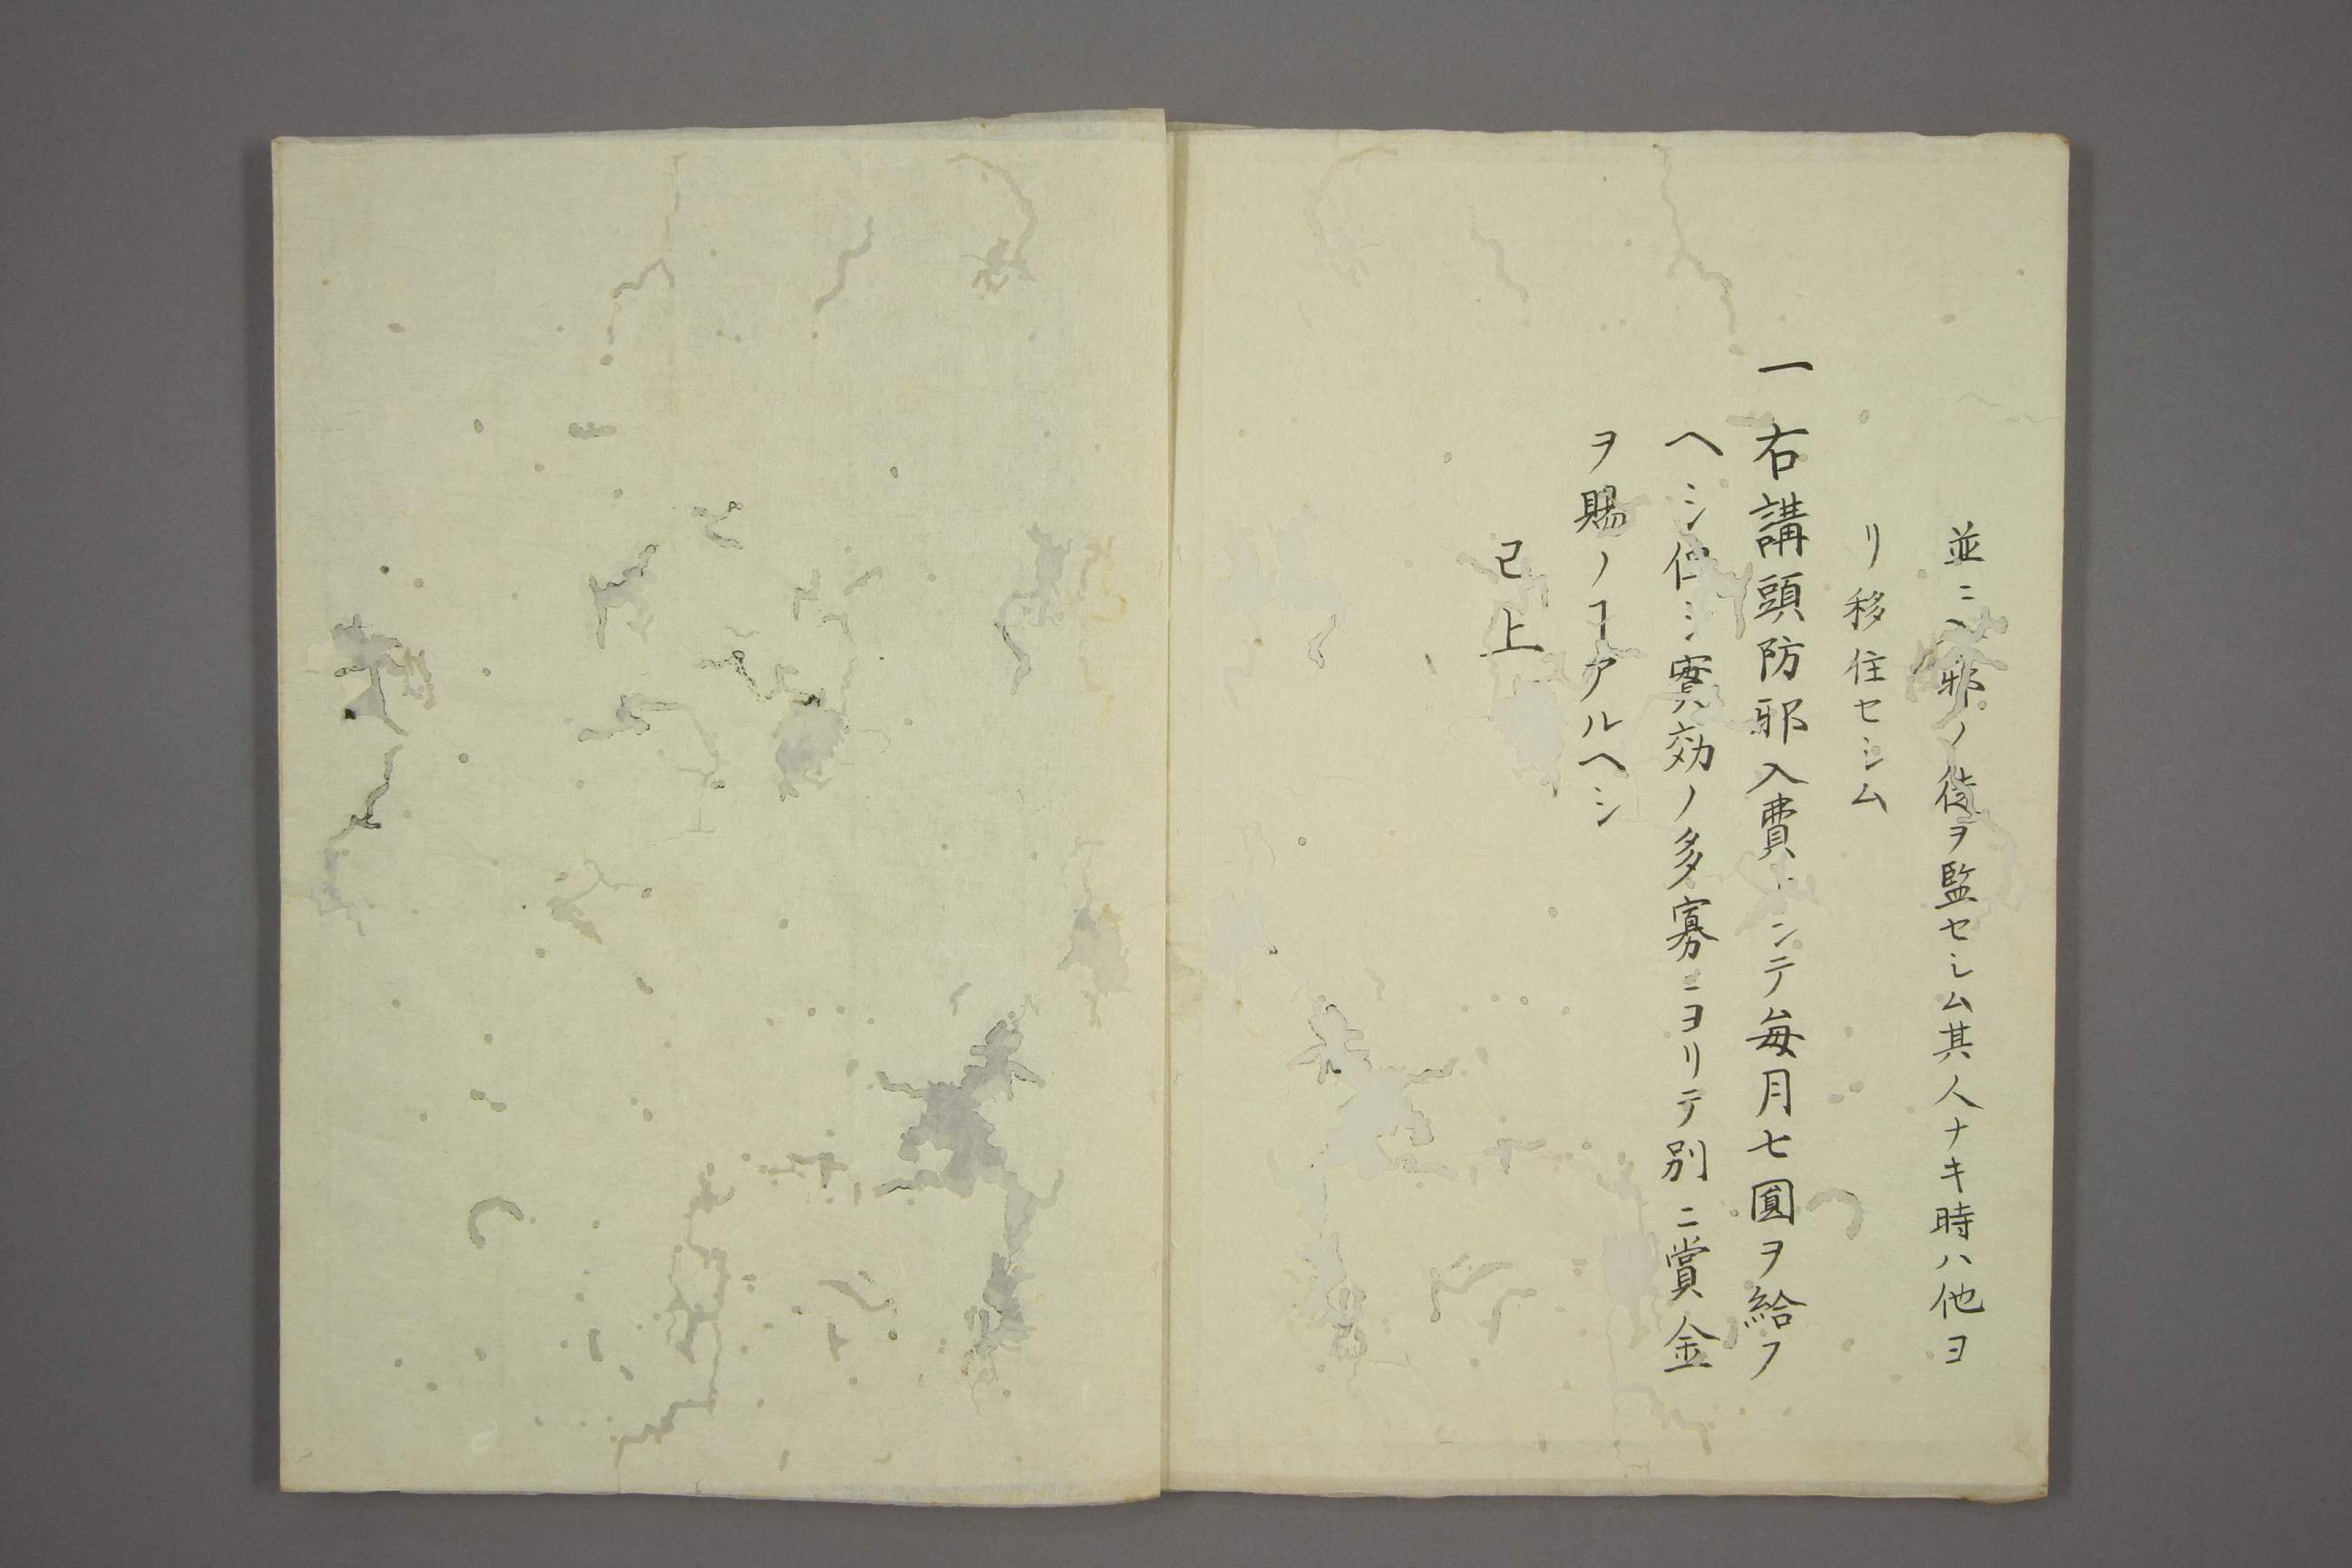 並ニ入邪ノ徒ヲ監セシム其人ナキ時ハ他ヨ
リ移住セシム
一右講頭防邪入費トシテ毎月七圓ヲ給フ
ヘシ但シ實効ノ多寡ニヨリテ別ニ賞金
ヲ賜ノヿアルヘシ
已上